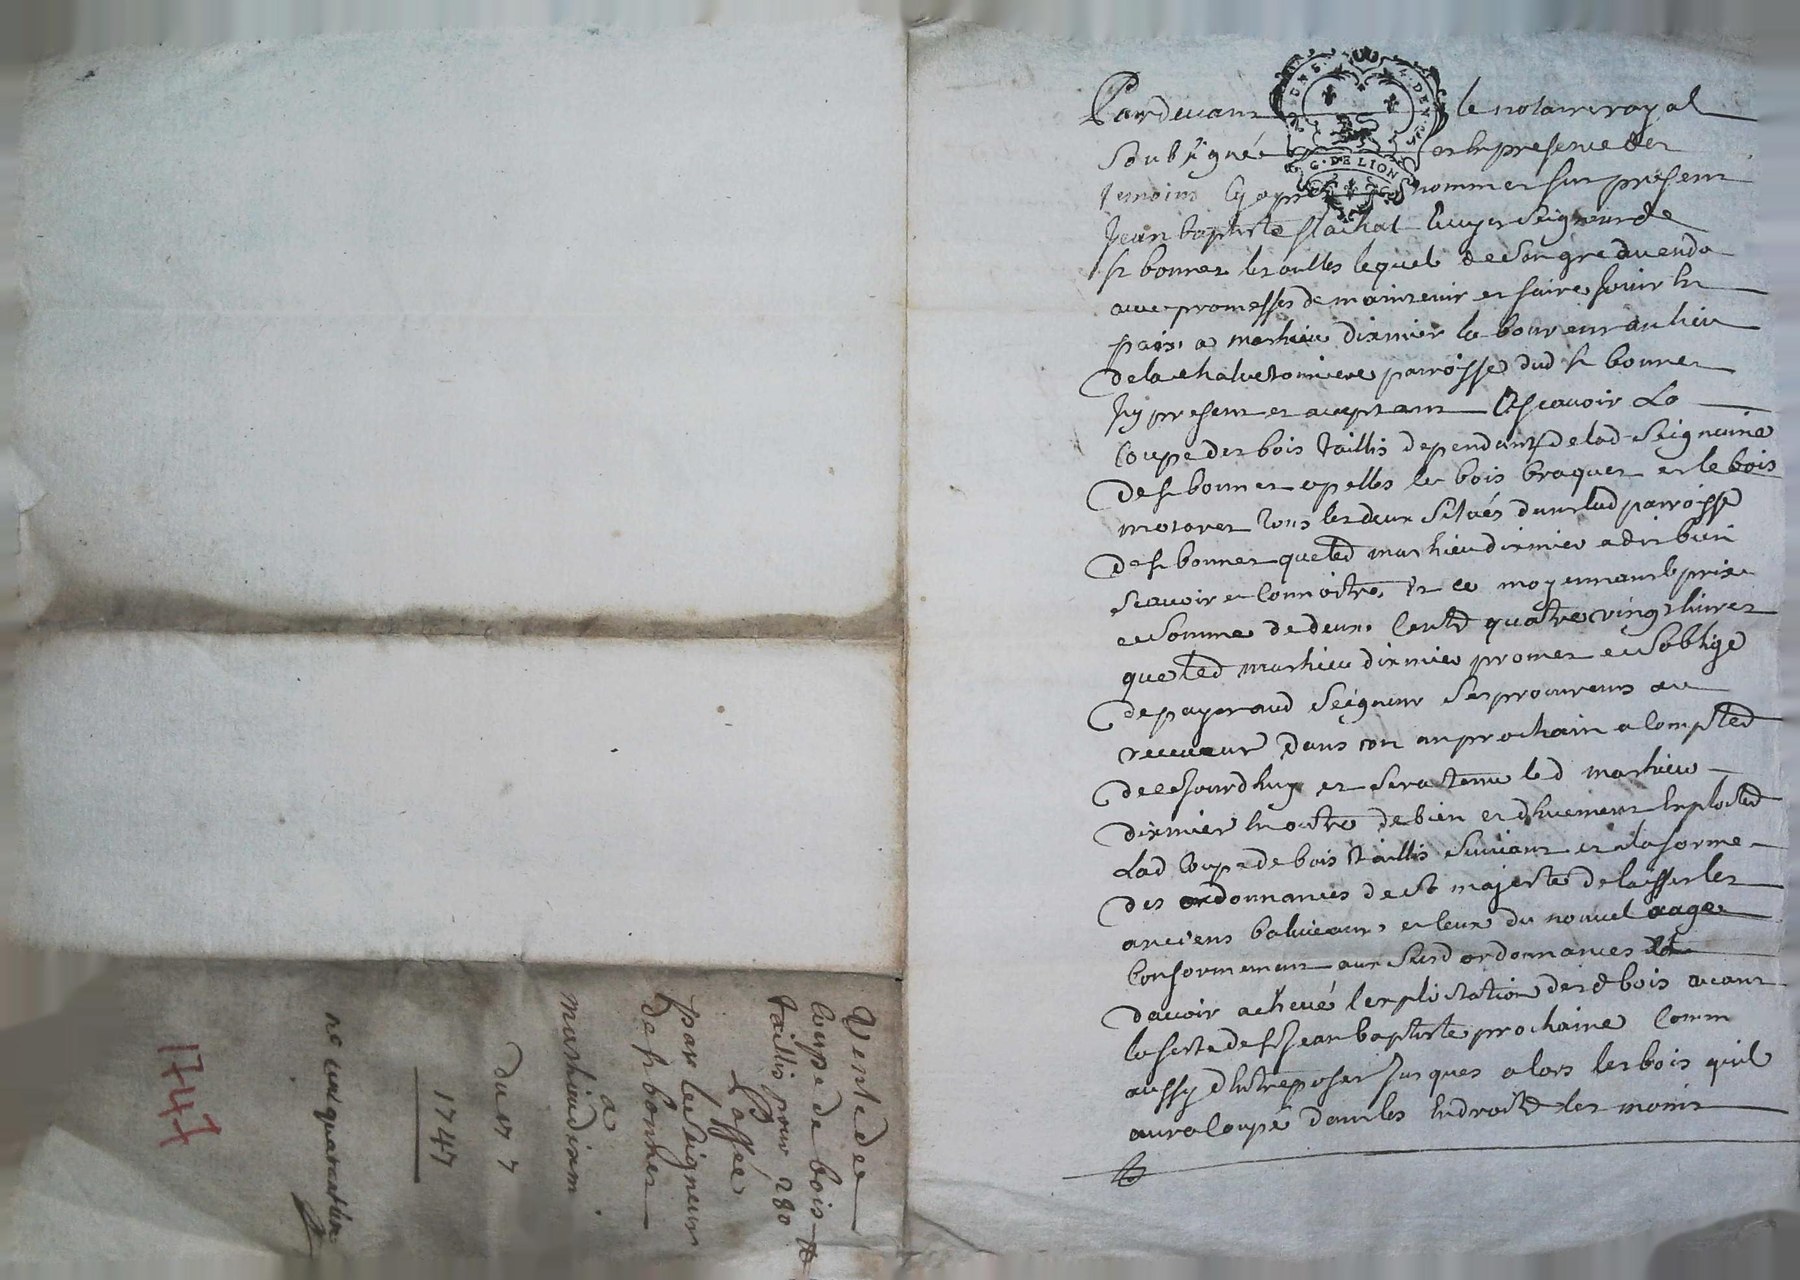 Pardevant le notaire royal
Soubsigné et en presence des
temoins cy apres nommes fut present
Jean baptiste flachat Ecuyer Seigneur de
st bonnet les oulles lequel de Son gre a vendu
avec promesses de maintenir et faire jouir en
paix, a mathieu dixmier laboureur du lieu
de la chalvetonniere parroisse dud st bonnet
Icy present et acceptant Asscavoir La
Coupe des bois taillis dependants de lad Seigneurie
de st bonnet apelles les bois braquet et le bois
motaret tous les deux situés dans lad parroisse
de st bonnet que led mathieu dixmier a dit bien
scavoir et Connoitre, Et ce moyennant le prix
et Somme de deux Cents quatre vingt livres
que led mathieu dixmier promet et Soblige
de payer aud Seigneur Ses procureurs ou
receveur dans un an prochain a Compter
de cejourdhuy et Sera tenu led mathieu
dixmier En outre de bien et dhuement Exploiter
Lad Coupe de bois taillis Suivant et a la forme
des ordonnances de Sa majesté de laisser les
anciens baliveaux, et Ceux du nouvel aage
Conformement aux Susd ordonnances
davoir achevé lexploitation desd bois avant
la feste de St Jean baptiste prochaine Comm
aussy dEntreposer Jusques alors les bois quil
aura Coupé dans les Endroits les moins
G. DE LION
Vente de
Coupe de bois
taillis pour 280
Passée
par le Seigneur
de st bonnet
a
mathieu dixm
du 7
1747
no cent quarantun
1747